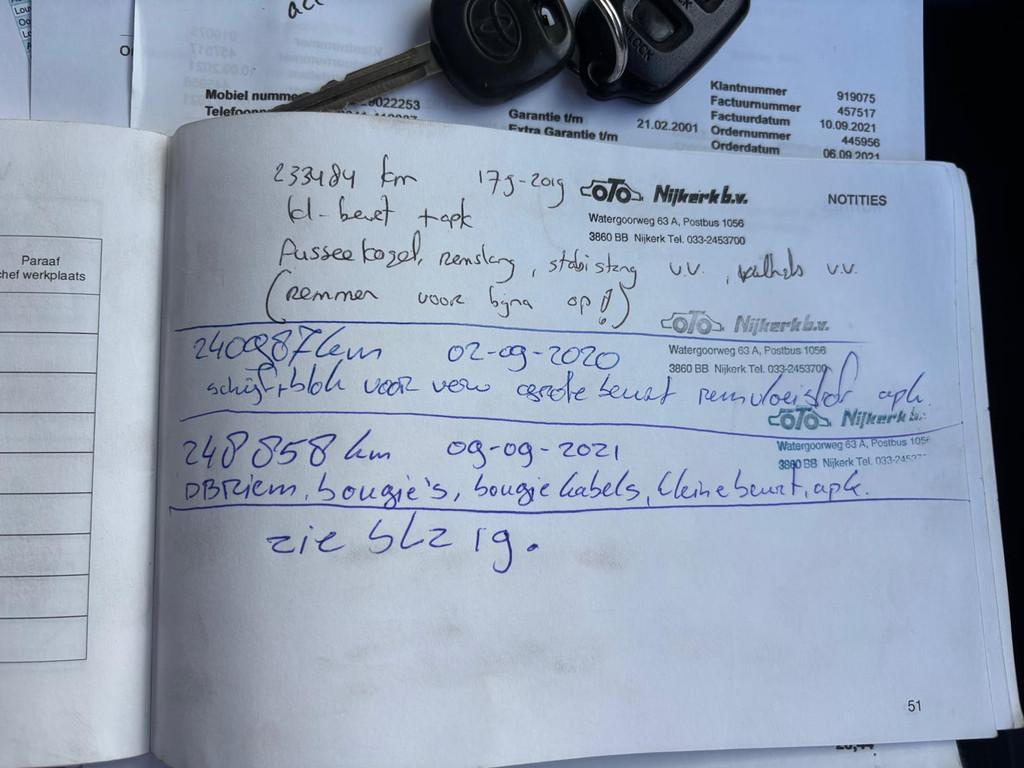 Mobiel nummer
022253
Telefoon
Garantie t/m 21.02.2001
Extra Garantie t/m
Klantnummer 919075
Factuurnummer 457517
Factuurdatum 10.09.2021
Ordernummer 445956
Orderdatum 06.09.2021
Paraaf
chef werkplaats
NOTITIES
233484 km 17-9-2019
OTO Nijkerk b.v.
Watergoorweg 63 A, Postbus 1056
3860 BB Nijkerk Tel. 033-2453700
kl-beurt + apk
Fusseekogel, remslang, stabistang v.v., v.v.
(remmen voor bijna op!)
OTO Nijkerk b.v.
Watergoorweg 63 A, Postbus 1056
3860 BB Nijkerk Tel. 033-2453700
240987 km 02-09-2020
schijf+blok voor verv grote beurt remvloeistof apk.
OTO Nijkerk b.v.
Watergoorweg 63 A, Postbus 1056
3860 BB Nijkerk Tel. 033-2453
248858 km 09-09-2021
DBRiem, bougie's, bougie kabels, kleine beurt, apk.
zie blz 19.
51